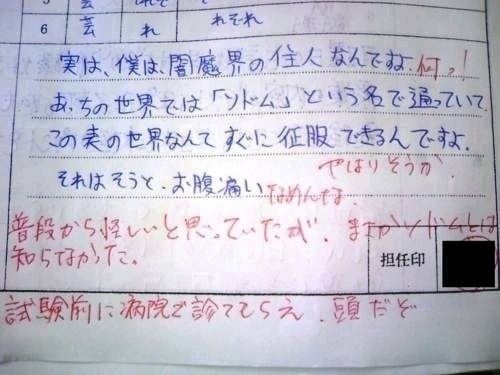 5 芸
6 芸 れ れそれ
実は、僕は、闇魔界の住人なんですよ. 何っ!
あっちの世界では「ソドム」という名で通っていて
この表の世界なんてすぐに征服できるんですよ.
やはりそうか.
それはそうと、お腹痛い なめんなよ.
普段から怪しいと思っていたが. まさかソドムとは
知らなかった.
担任印
試験前に病院で診てもらえ. 頭だぞ